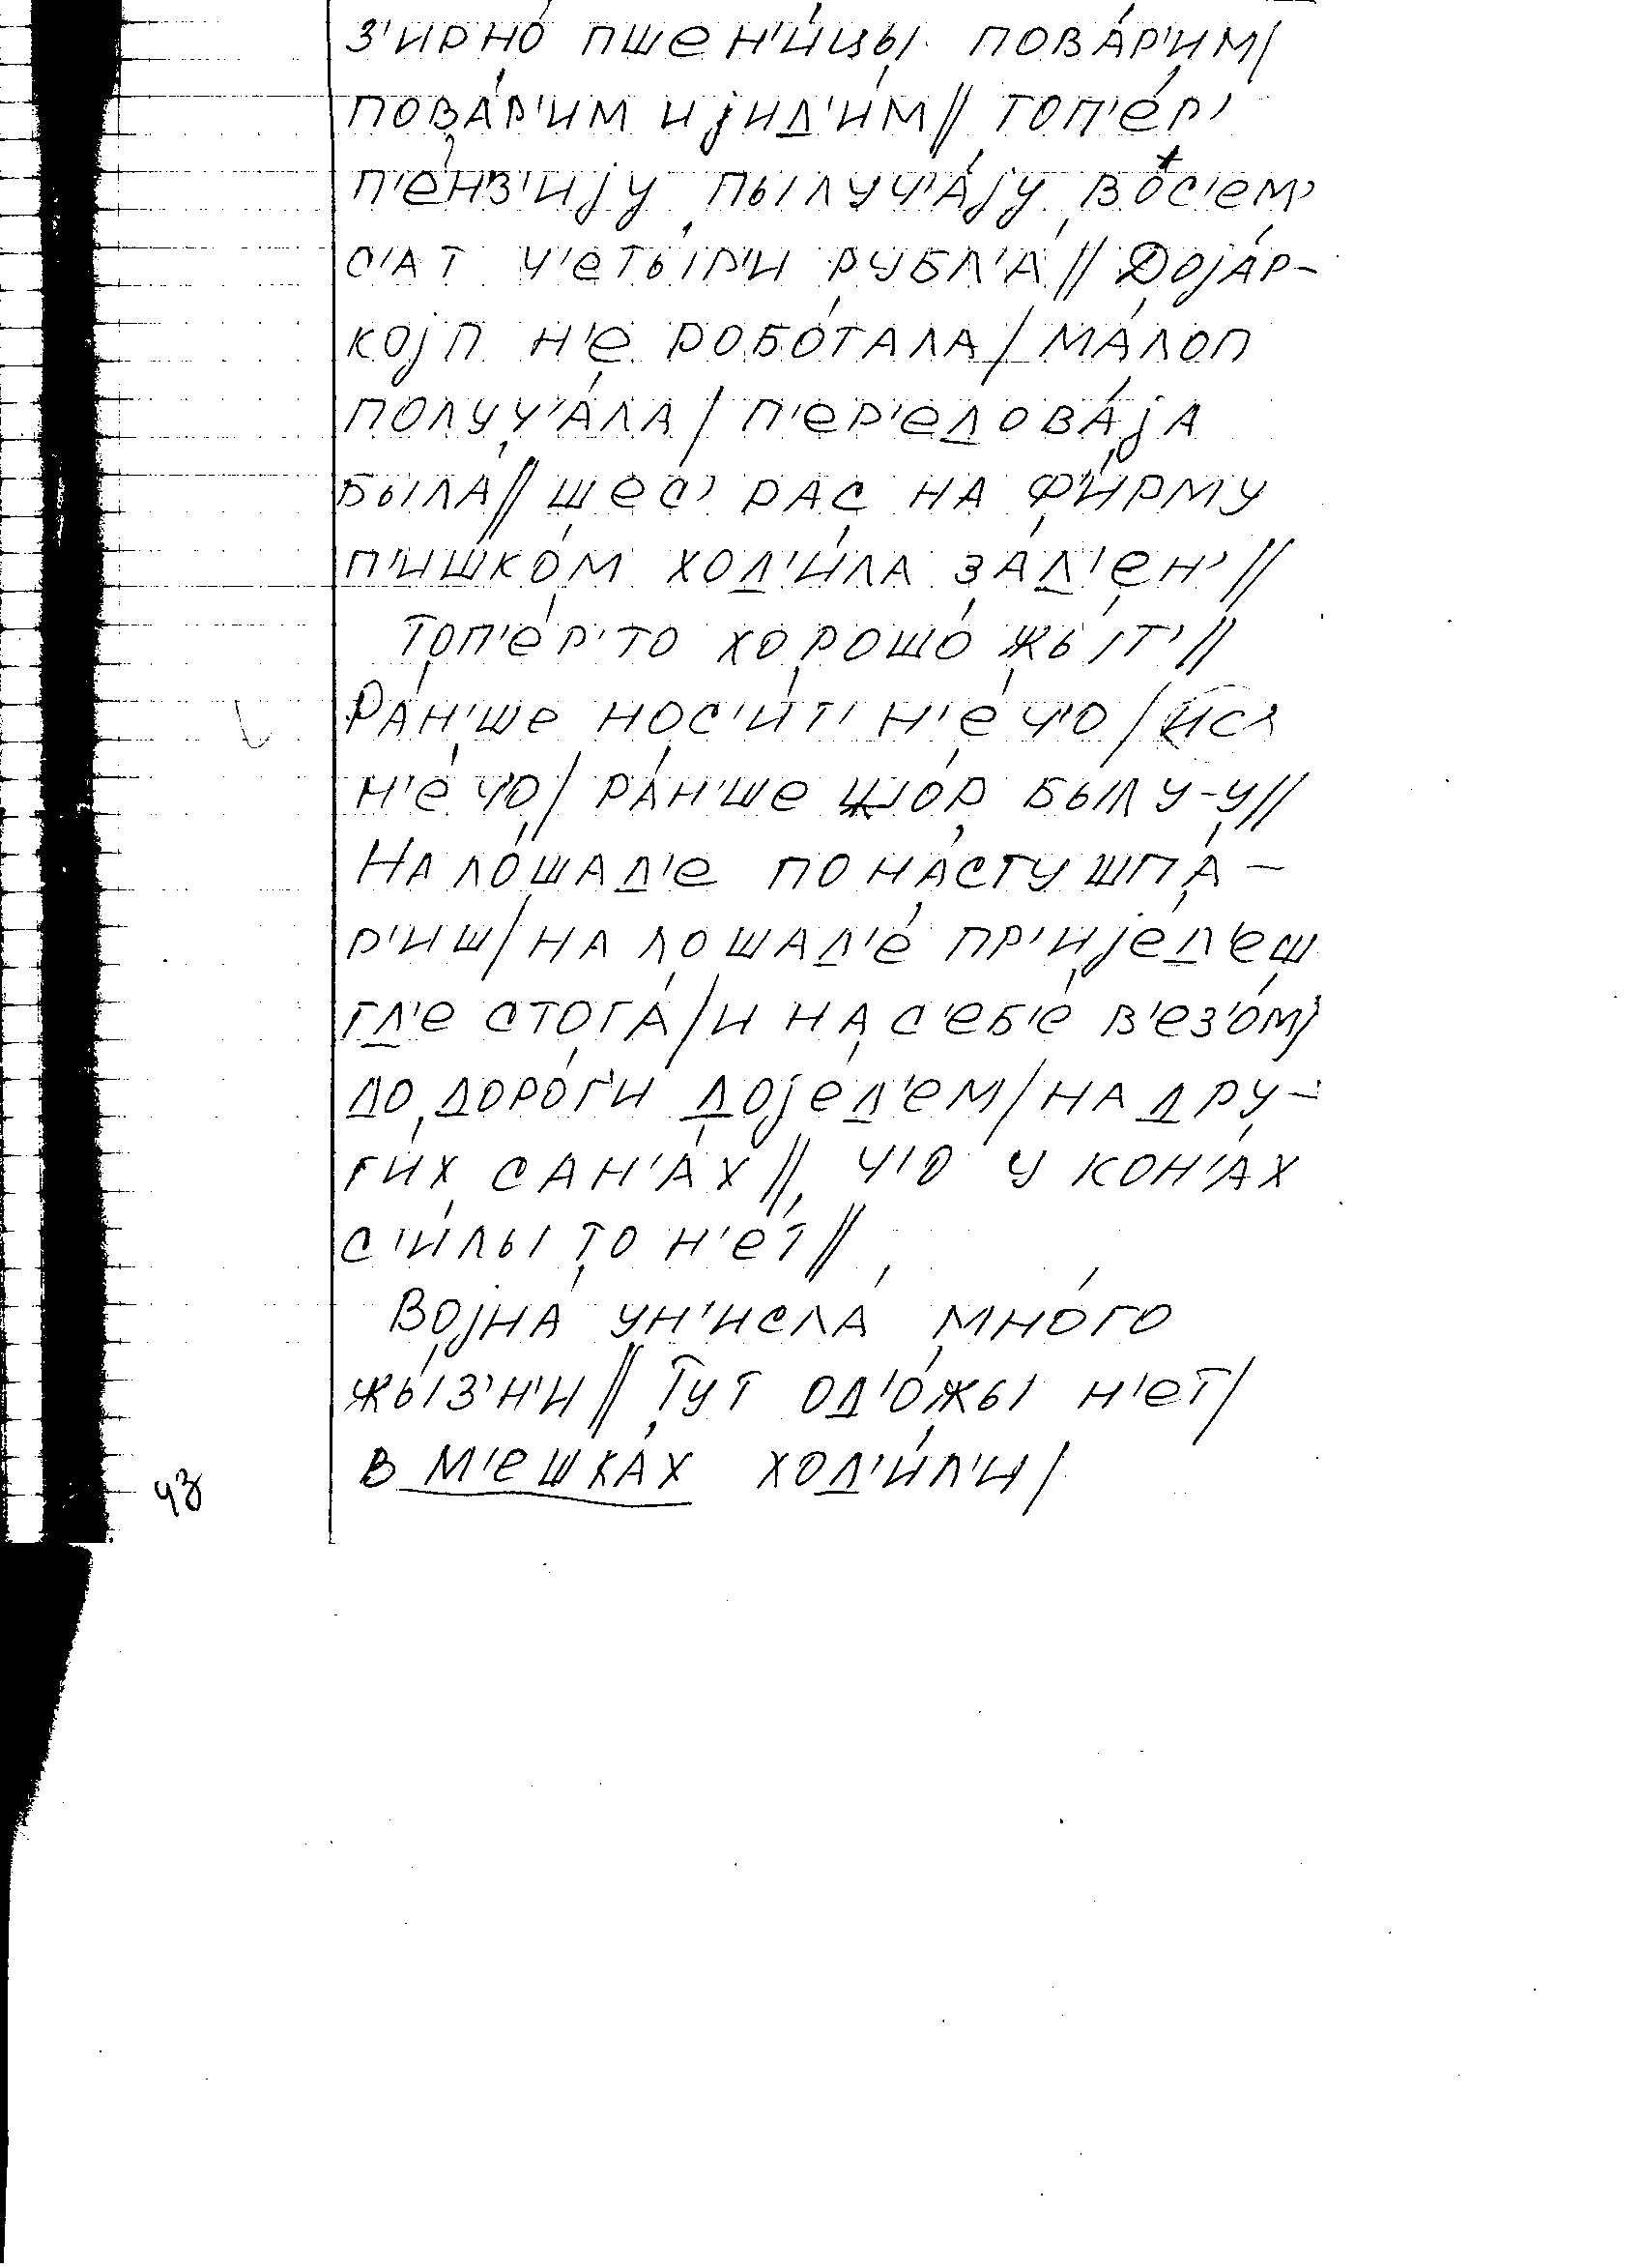 з'ирно́ пшен'и́цы пова́р'им/
пова́р'им и јид'и́м// топ'е́р'
п'е́нз'ију пылуч'а́ју во́с'ем'
с'ат ч'еты́р'и рубл'а́// Доја́р-
којп н'е робо́тала/ ма́лоп
получ'а́ла/ п'ер'едова́ја
была́// шес' рас на ф'и́рму
п'ишко́м ход'и́ла за́ д'ен'//
Топ'е́р'то хорошо́ жыт'//
Ра́н'ше нос'и́т' н'е́ч'о/ ис'
н'е́ч'о/ ра́н'ше был у-у//
На ло́шад'е по на́сту шпа́-
р'иш/ на лошад'е́ пр'ије́д'еш
гд'е стога́/ и на с'еб'е́ в'ез'о́м/
до доро́г'и доје́д'ем/ на дру-
ги́х сан'а́х// ч'о у кон'а́х
с'и́лы то н'е́т//
Војна́ ун'исла́ мно́го
жы́з'н'и// Тут од'о́жы н'ет/
в м'ешка́х ход'и́л'и/
43